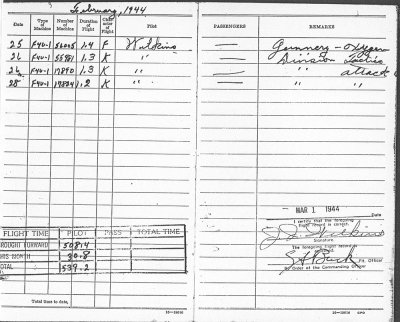 February, 1944
Date Type of Machine Number of Machine Duration of Flight Character of Flight Pilot PASSENGERS REMARKS
25 F4U-1 56005 1.4 F Wilkins — Gunnery - Oxygen
26 F4U-1 1.3 K " — Division Tactics
26 F4U-1 17890 1.3 K " — attack
28 F4U-1 1.2 K " — " "
FLIGHT TIME PILOT PASS TOTAL TIME
BROUGHT FORWARD 508.4
THIS MONTH 30.8
TOTAL 539.2
Total time to date,
MAR 1 1944
Date
I certify that the foregoing flight record is correct.
Wilkins
Signature
The foregoing flight record
S H Buck
Flt. Officer
By Order of the Commanding Officer
GPO